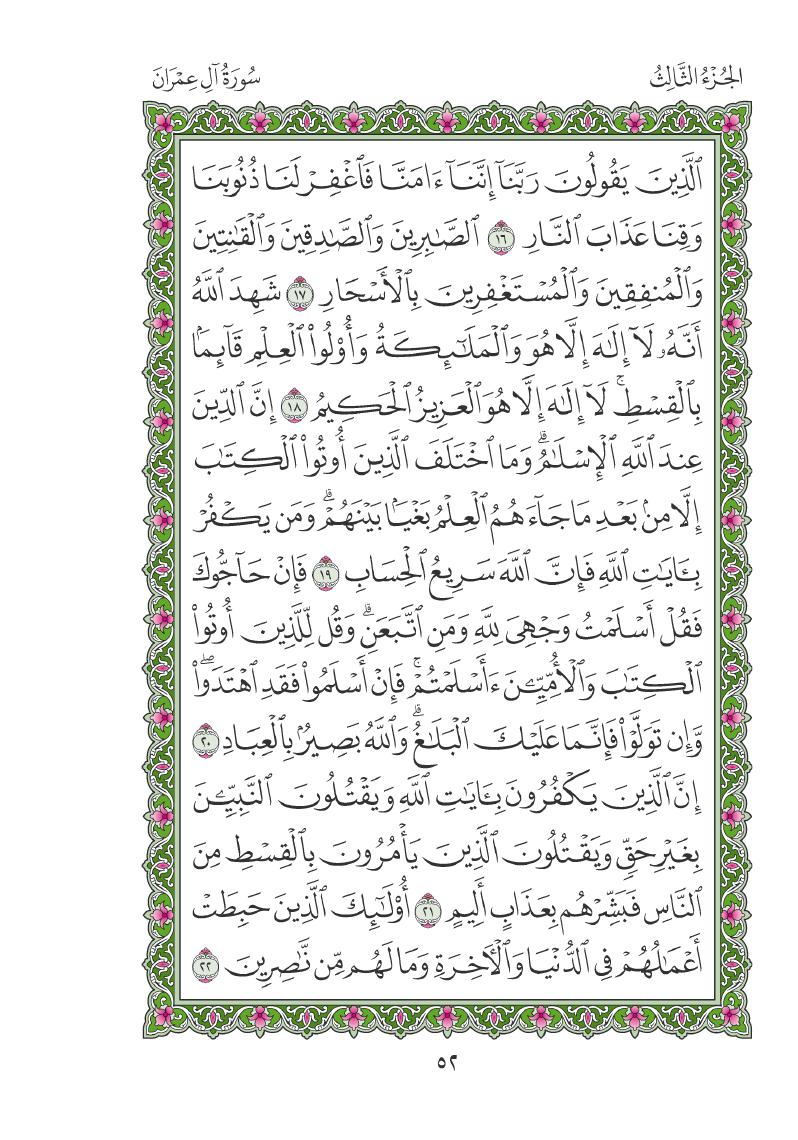 الجُزْءُ الثَّالِثُ
سُورَةُ آلِ عِمْرَانَ
ٱلَّذِينَ يَقُولُونَ رَبَّنَآ إِنَّنَآ ءَامَنَّا فَٱغْفِرْ لَنَا ذُنُوبَنَا
وَقِنَا عَذَابَ ٱلنَّارِ ١٦ ٱلصَّٰبِرِينَ وَٱلصَّٰدِقِينَ وَٱلْقَٰنِتِينَ
وَٱلْمُنفِقِينَ وَٱلْمُسْتَغْفِرِينَ بِٱلْأَسْحَارِ ١٧ شَهِدَ ٱللَّهُ
أَنَّهُۥ لَآ إِلَٰهَ إِلَّا هُوَ وَٱلْمَلَٰٓئِكَةُ وَأُو۟لُوا۟ ٱلْعِلْمِ قَآئِمًۢا
بِٱلْقِسْطِۚ لَآ إِلَٰهَ إِلَّا هُوَ ٱلْعَزِيزُ ٱلْحَكِيمُ ١٨ إِنَّ ٱلدِّينَ
عِندَ ٱللَّهِ ٱلْإِسْلَٰمُۗ وَمَا ٱخْتَلَفَ ٱلَّذِينَ أُوتُوا۟ ٱلْكِتَٰبَ
إِلَّا مِنۢ بَعْدِ مَا جَآءَهُمُ ٱلْعِلْمُ بَغْيًۢا بَيْنَهُمْۗ وَمَن يَكْفُرْ
بِـَٔايَٰتِ ٱللَّهِ فَإِنَّ ٱللَّهَ سَرِيعُ ٱلْحِسَابِ ١٩ فَإِنْ حَآجُّوكَ
فَقُلْ أَسْلَمْتُ وَجْهِىَ لِلَّهِ وَمَنِ ٱتَّبَعَنِۗ وَقُل لِّلَّذِينَ أُوتُوا۟
ٱلْكِتَٰبَ وَٱلْأُمِّيِّـۧنَ ءَأَسْلَمْتُمْۚ فَإِنْ أَسْلَمُوا۟ فَقَدِ ٱهْتَدَوا۟ۖ
وَّإِن تَوَلَّوْا۟ فَإِنَّمَا عَلَيْكَ ٱلْبَلَٰغُۗ وَٱللَّهُ بَصِيرٌۢ بِٱلْعِبَادِ ٢٠
إِنَّ ٱلَّذِينَ يَكْفُرُونَ بِـَٔايَٰتِ ٱللَّهِ وَيَقْتُلُونَ ٱلنَّبِيِّـۧنَ
بِغَيْرِ حَقٍّ وَيَقْتُلُونَ ٱلَّذِينَ يَأْمُرُونَ بِٱلْقِسْطِ مِنَ
ٱلنَّاسِ فَبَشِّرْهُم بِعَذَابٍ أَلِيمٍ ٢١ أُو۟لَٰٓئِكَ ٱلَّذِينَ حَبِطَتْ
أَعْمَٰلُهُمْ فِى ٱلدُّنْيَا وَٱلْـَٔاخِرَةِ وَمَا لَهُم مِّن نَّٰصِرِينَ ٢٢
٥٢